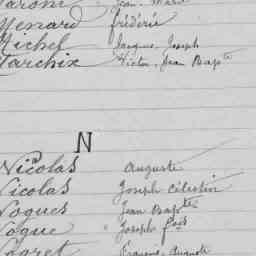 Jean-Marie
Menard frédéric
Michel Jacques, Joseph
Marchix Victor, Jean Bapte
N
Nicolas Auguste
Nicolas Joseph Célestin
Nogues Jean Bapte
Nogue Joseph fçois
Auguste